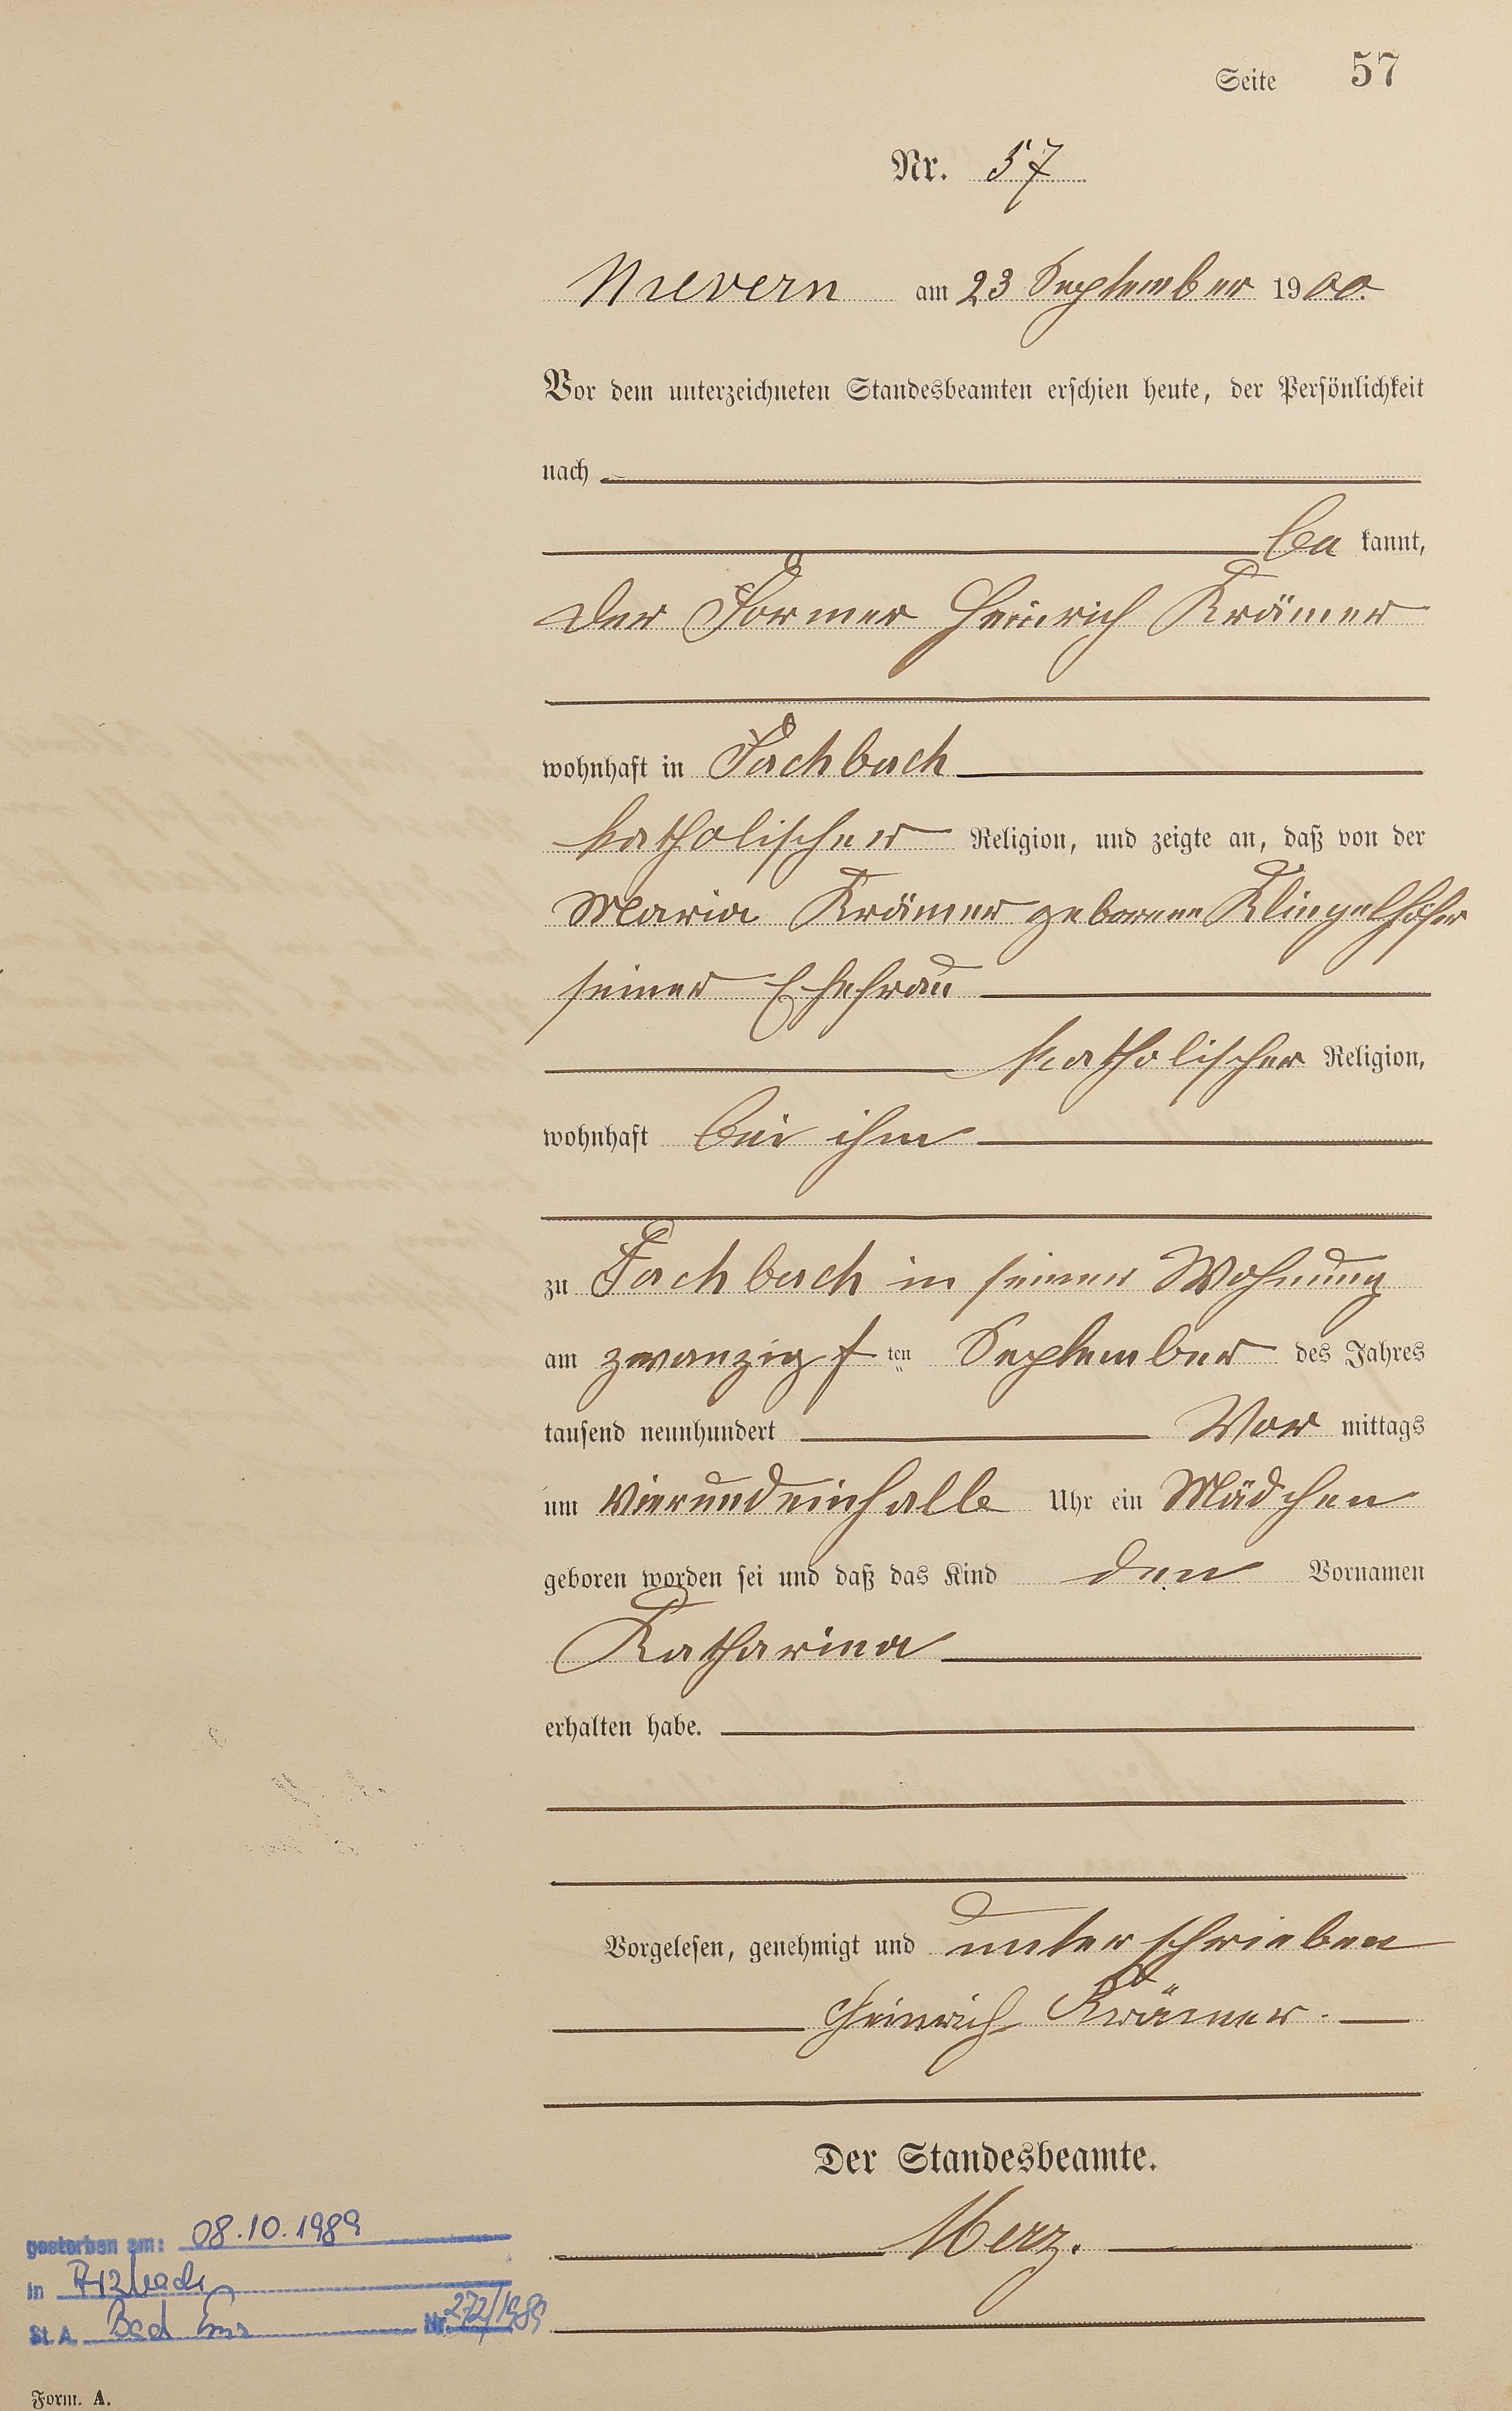 Seite 57
Nr. 57
Nievern am 23 September 1900.
Vor dem unterzeichneten Standesbeamten erschien heute, der Persönlichkeit
nach
be kannt,
der Former Heinrich Krämer
wohnhaft in Fachbach
katholischer Religion, und zeigte an, daß von der
Maria Krämer geborene Klingelhöfer
seiner Ehefrau
katholischer Religion,
wohnhaft bei ihm
zu Fachbach in seiner Wohnung
am zwanzigsten September des Jahres
tausend neunhundert Vor mittags
um vierundeinhalb Uhr ein Mädchen
geboren worden sei und daß das Kind den Vornamen
Katharina
erhalten habe.
Vorgelesen, genehmigt und unterschrieben
Heinrich Krämer.
Der Standesbeamte.
Merz.
gestorben am: 08.10.1989
in Arzbach
St. A. Bad Ems Nr. 272/1989
Form. A.